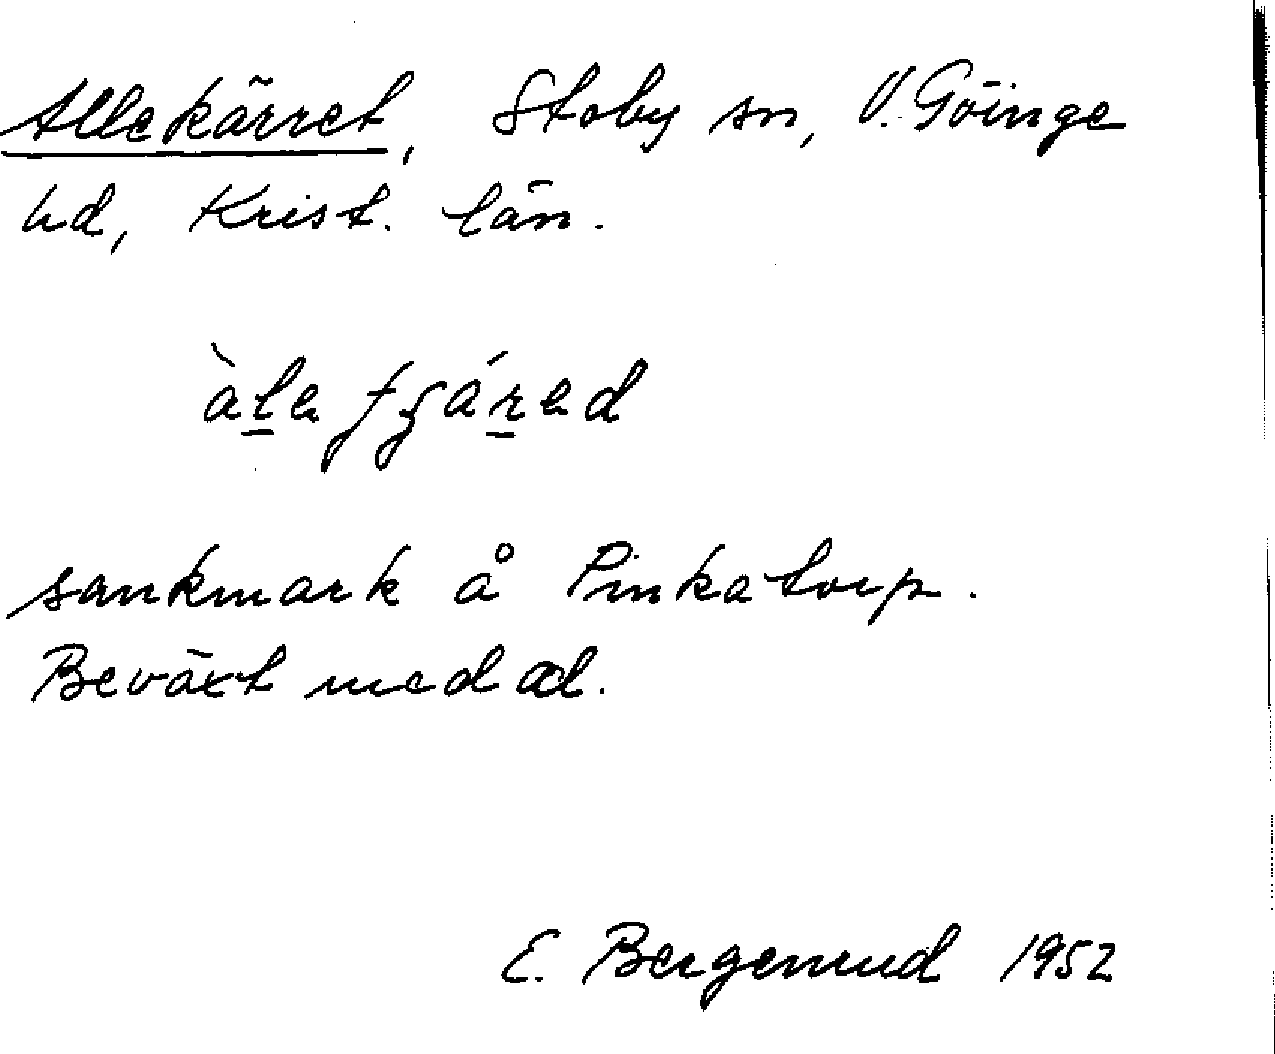 Allekärret, Stoby sn, V. Göinge
hd, Krist. län.
sankmark å Pinkatorp.
Beväxt med al.
E. Bergenrud 1952